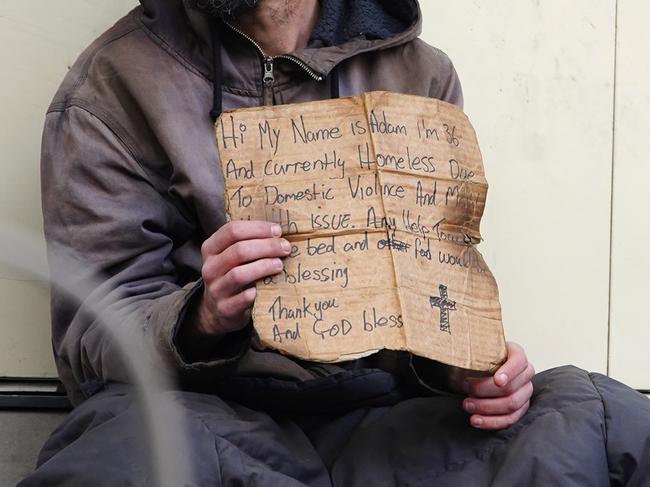 Hi My Name is Adam I'm 36
And Currently Homeless Due
To Domestic Violnce And
ISSUE. Any Help
bed and food would
a blessing
Thankyou
And GOD bless